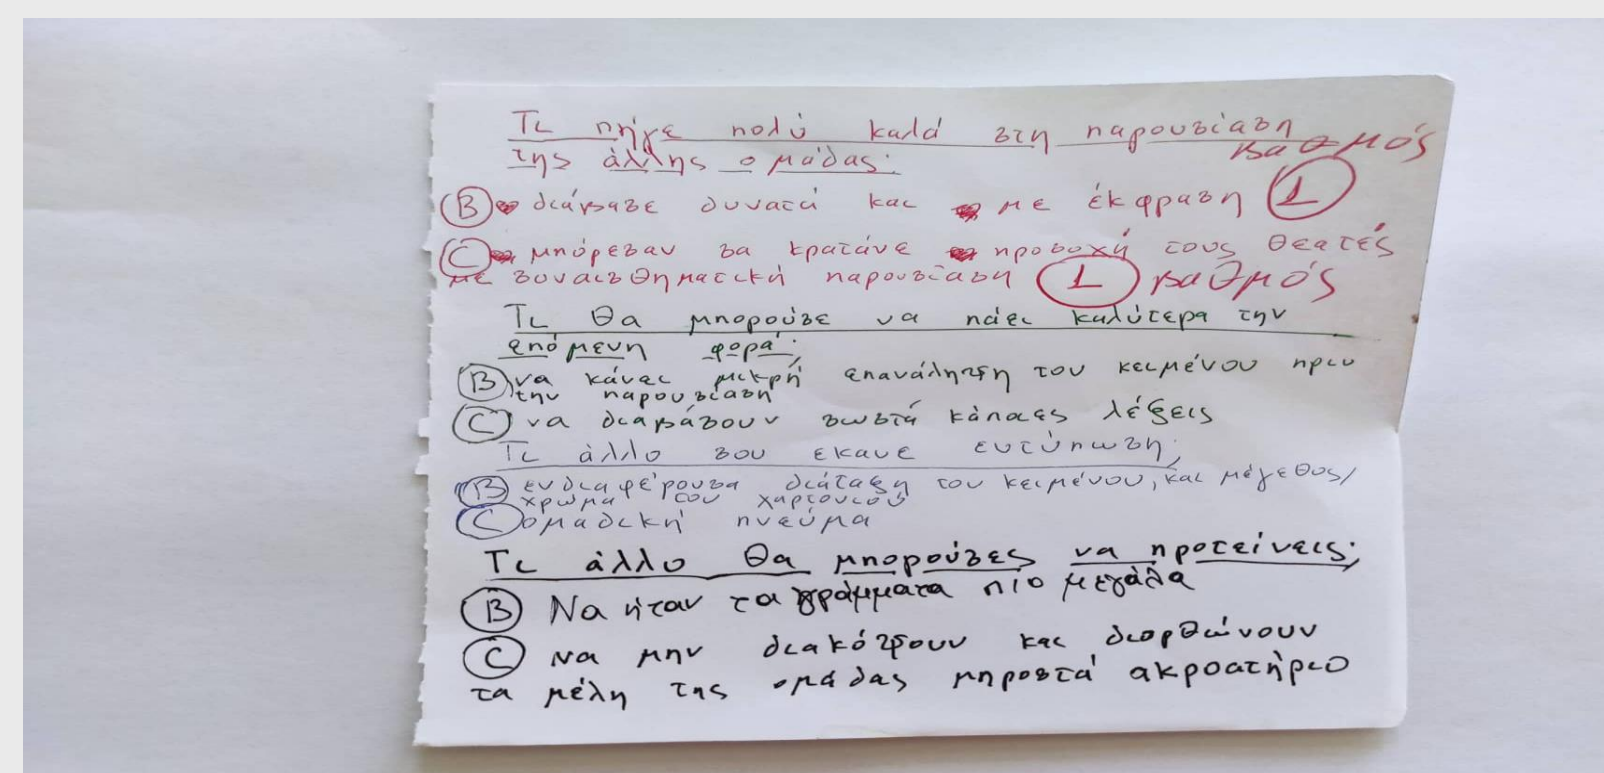 Τι πήγε πολύ καλά στη παρουσίαση
της άλλης ομάδας; βαθμός
Β διάβασε δυνατά και με έκφραση 1
C μπόρεσαν να κρατάνε προσοχή τους θεατές
με συναισθηματική παρουσίαση 1 βαθμός
Τι θα μπορούσε να πάει καλύτερα την
επόμενη φορά;
Β να κάνει μικρή επανάληψη του κειμένου πριν
την παρουσίαση
C να διαβάσουν σωστά κάποιες λέξεις
Τι άλλο σου εκανε εντύπωση;
Β ενδιαφέρουσα διάταξη του κειμένου, και μέγεθος/
χρώμα του χαρτονιού
C ομαδική πνεύμα
Τι άλλο θα μπορούσες να προτείνεις;
Β Να ήταν τα γράμματα πιο μεγάλα
C Να μην διακόψουν και διορθώνουν
τα μέλη της ομάδας μπροστά ακροατήριο